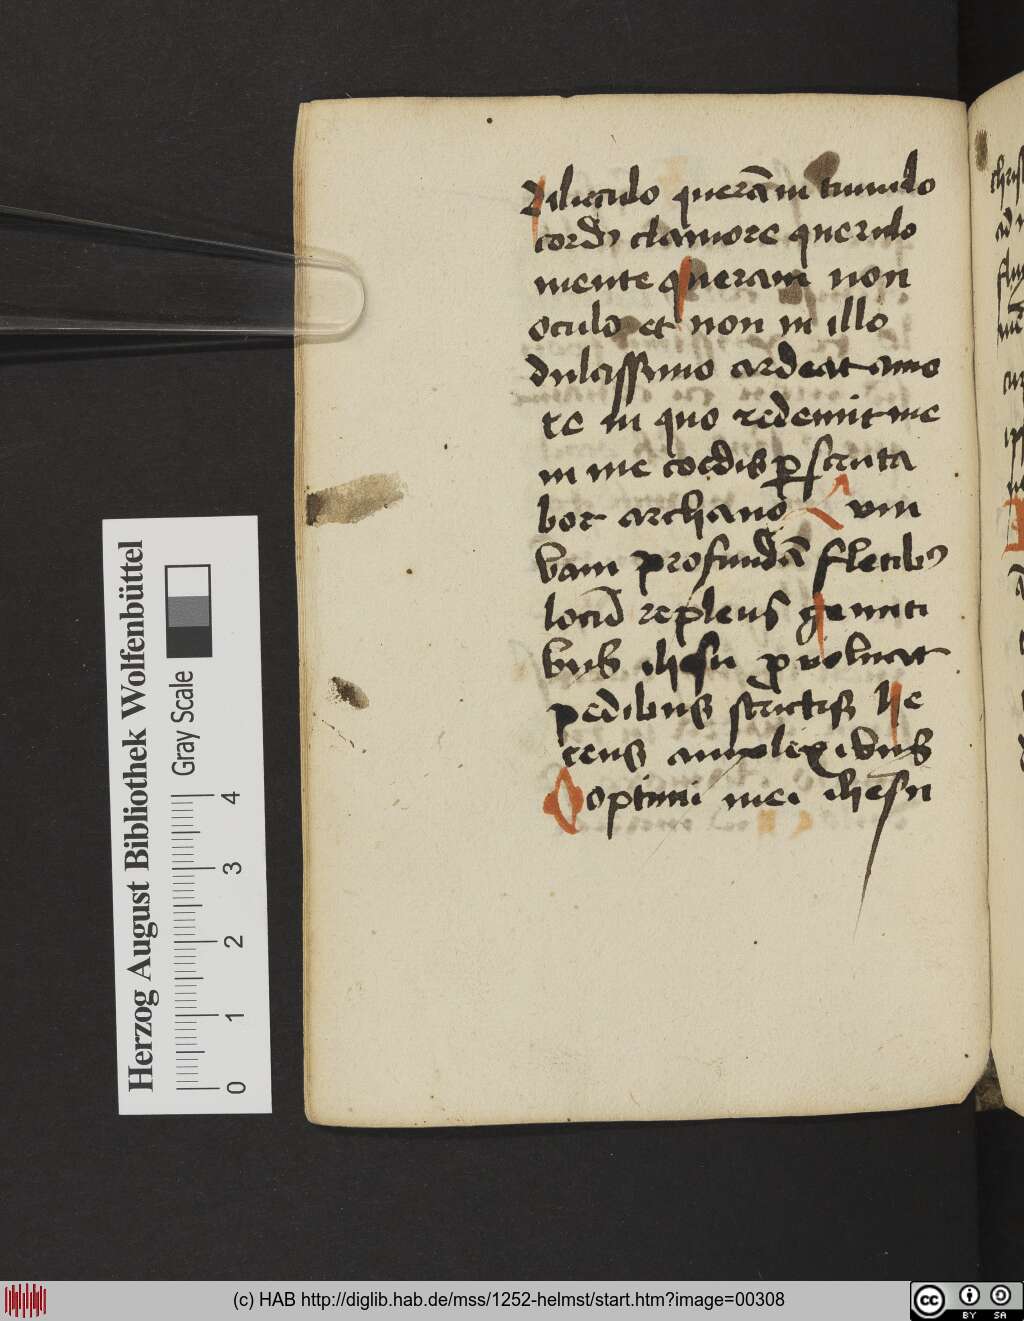 diluculo querā in tumulo
cordꝫ clamore querulo
mente queram non
oculo et non in illo
dulcissimo ardeat amo
re in quo redemit me
in me cordis ꝑscruta
bor archano
vm
bam profundā fletibꝰ
locū repleus gemiti
bus ihesu ꝓvoluat
pedibus strictis he
rens amplexibus
O optimi mei ihesu
Herzog August Bibliothek Wolfenbüttel
Gray Scale
0 1 2 3 4
(c) HAB http://diglib.hab.de/mss/1252-helmst/start.htm?image=00308
cc BY SA